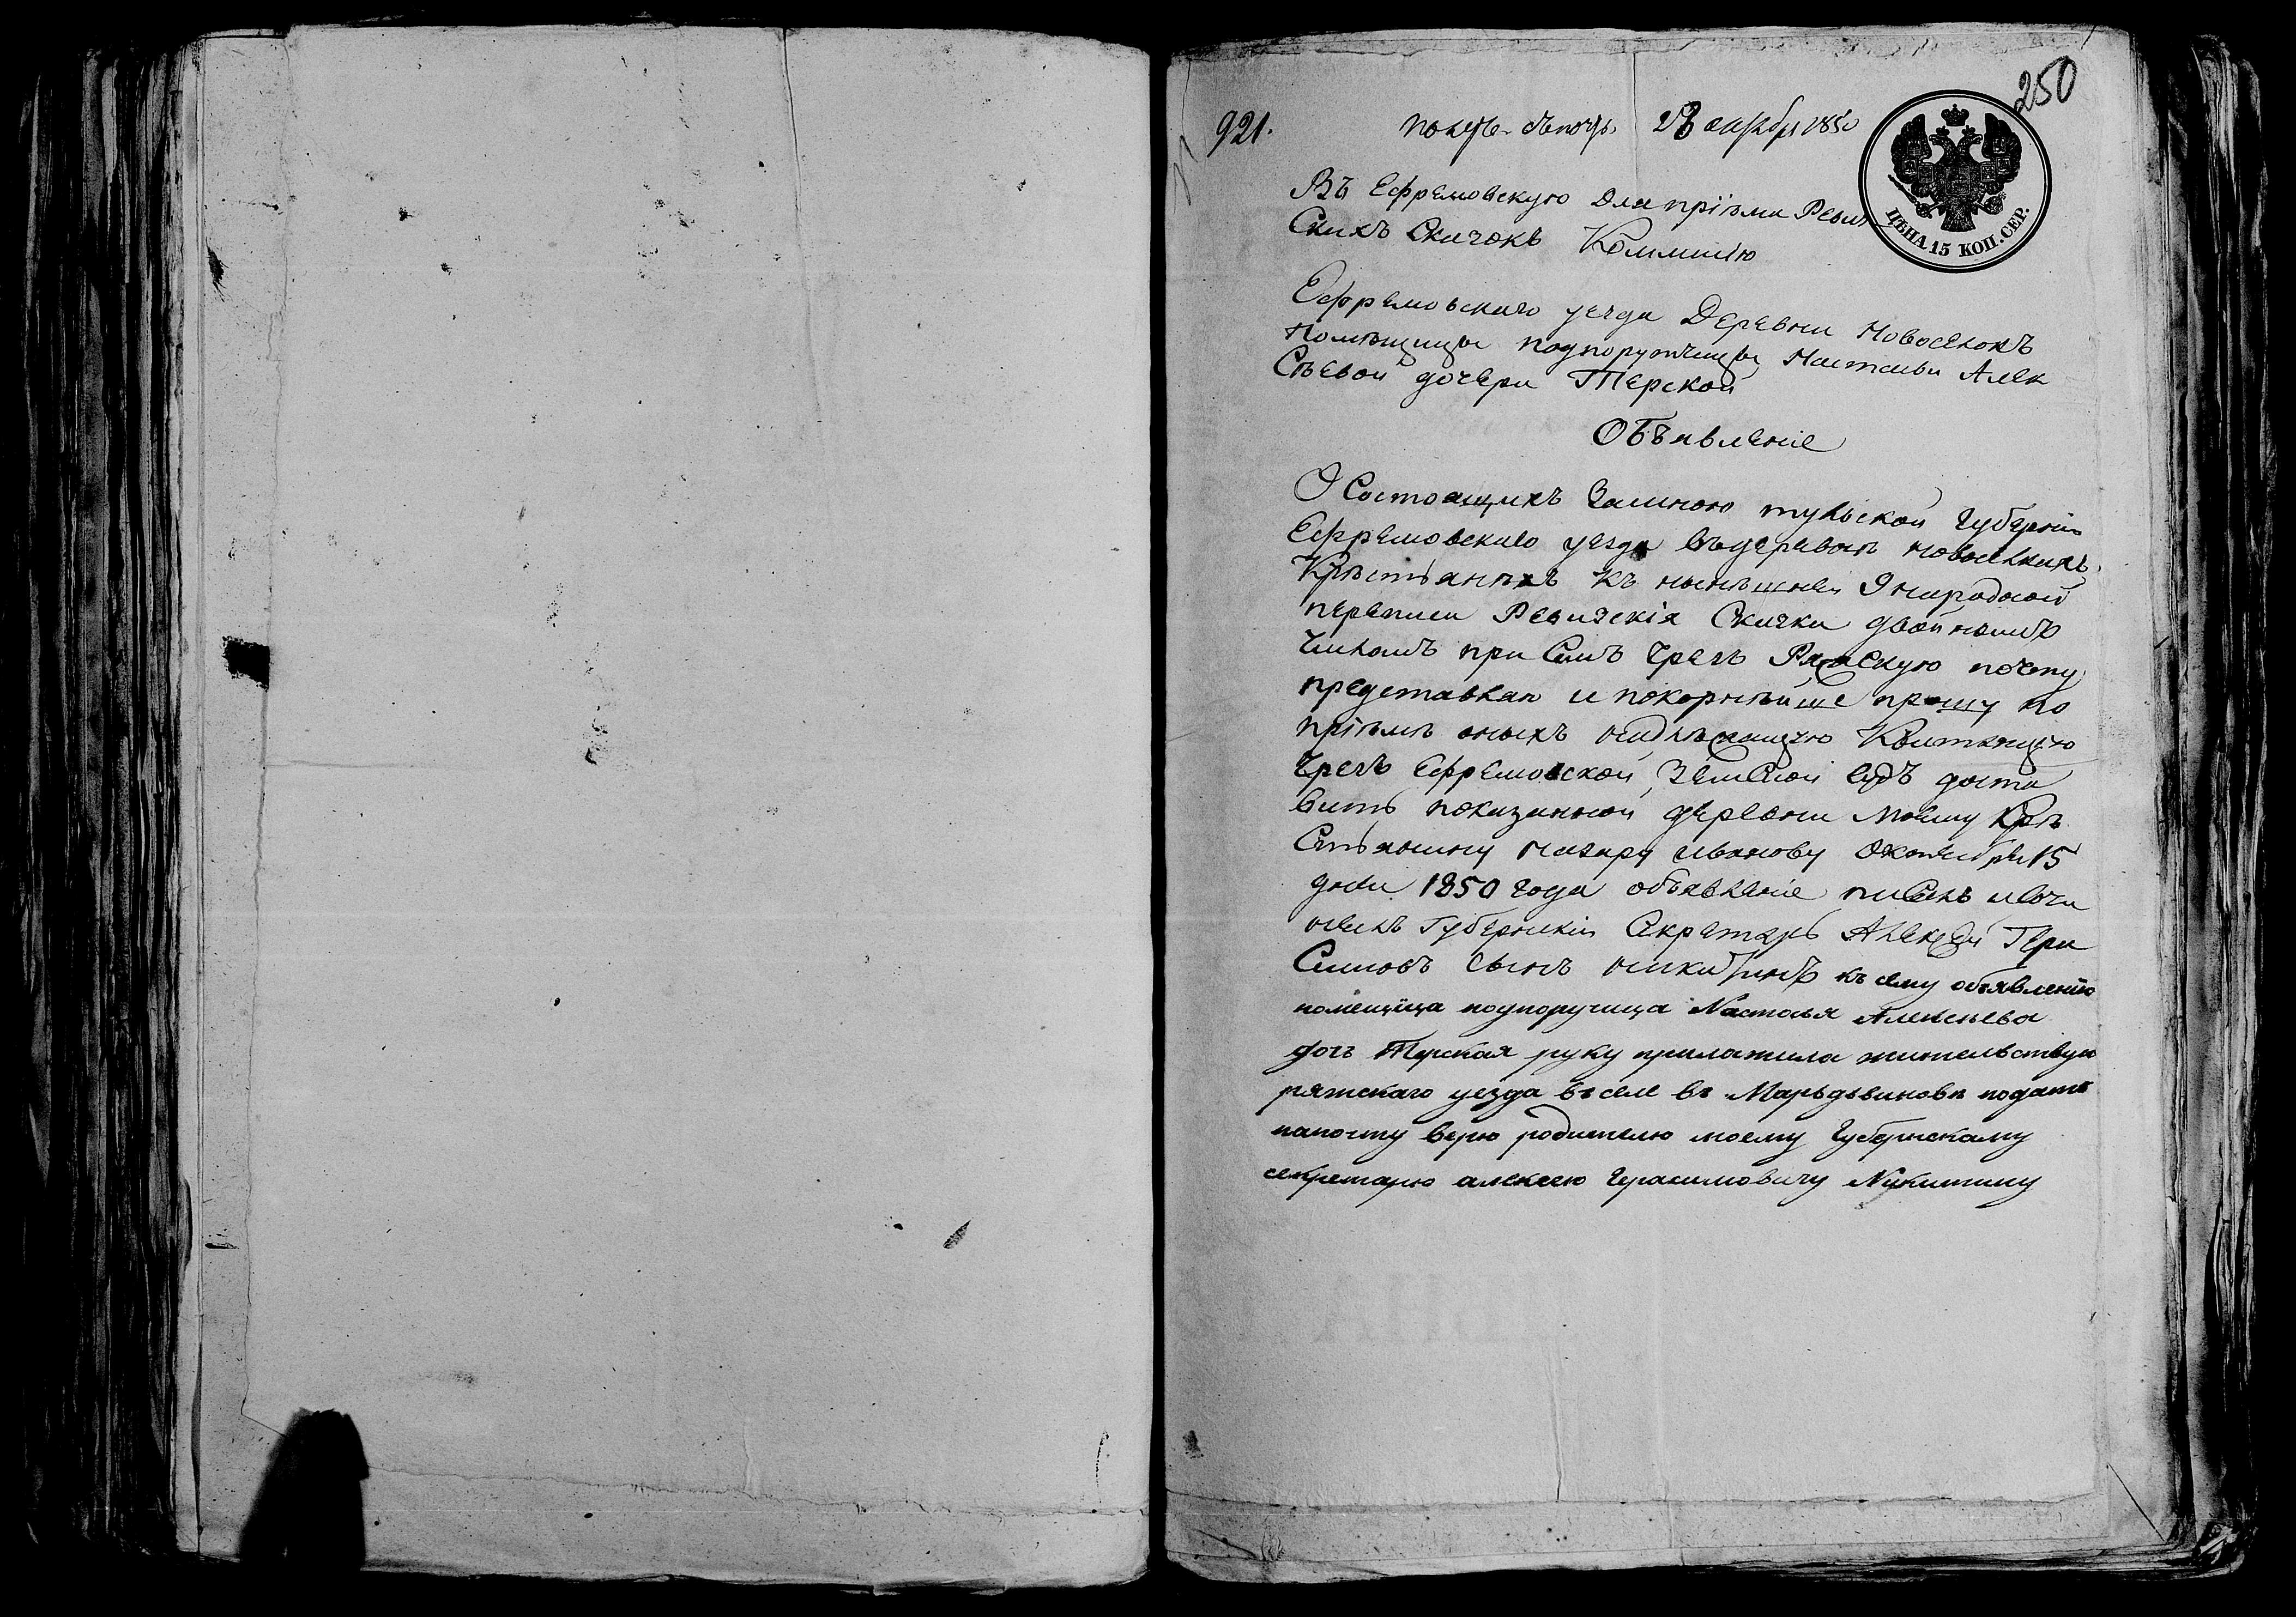 250
921.
получе. съ почт. 28 октября 1850
ЦѢНА 15 КОП. СЕР.
Въ Ефремовскую для пріѣма Ревиз
Скихъ Скачокъ Коммисію
Ефремовскаго уезда Деревни Новоселокъ
помѣщицы подпорутчицы Настасьи Алек
Сѣевой дочери Терской
Объявленіе
О Состоащихъ Замною тульской губерніи
Ефремовскаго уезда въдеревнѣ новоселкахъ
Крѣстьянахъ къ нынѣшней 9 народной
переписи Ревизскія Скачки двойнымъ
числомъ при Семъ чрезъ Ряжскую почту
представляю и покорнѣйше прошу по
пріѣмѣ оныхъ надлежащую Квитанцію
чрезъ Ефремовской Земской судъ доста
вить показанной деревни моему Крѣ
Стьянину назару иванову Октября 15
дня 1850 года объявленіе писалъ и сочи
нялъ Губернскій Секретарь Алексѣй Гера
Симовъ Сынъ никитинъ къ сему объявленію
помещица подпоручица Настасья Алексеева
дочь Терская руку приложила жительствую
ряжскаго уезда въ селе въ Марьдвиновк подать
напочту верю родителю моему Губернскому
секретарю алексею Герасимовичу Никитину